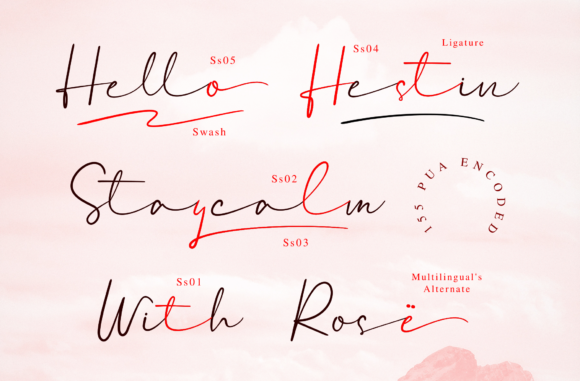 Ss05
Hello
Swash
Ss04
Ligature
Hestin
Ss02
Staycalm
Ss03
155 PUA ENCODED
Ss01
With
Multilingual's
Alternate
Rosë